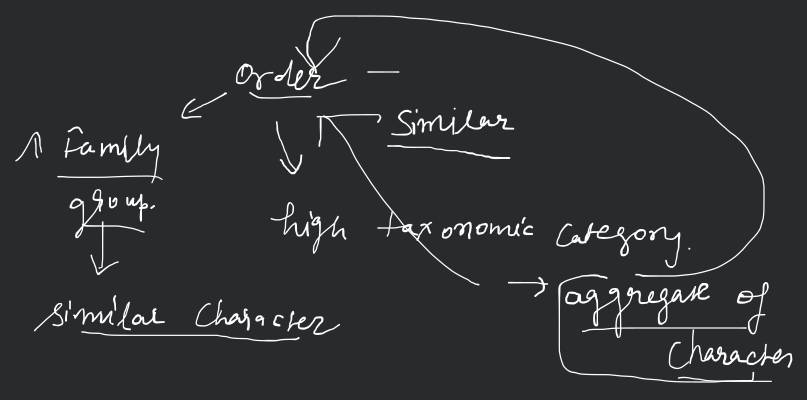 Order —
Similar
↑ Family
group.
high taxonomic category.
→ aggregate of
Character
Similar Character